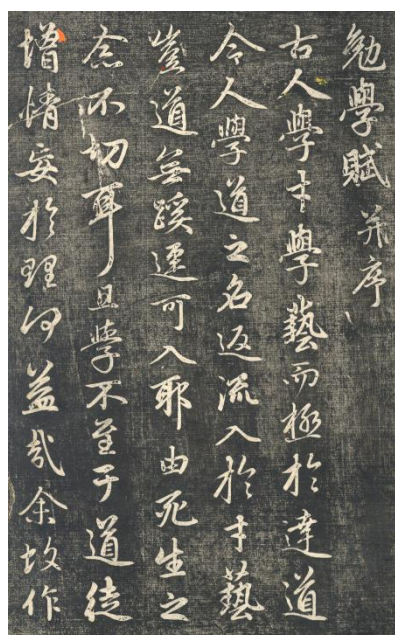 勉學賦 并序
古人學才學藝而極於達道
今人學道之名返流入於才藝
豈道無蹊逕可入耶由死生之
念不切耳且學不至于道徒
增情妄於理何益哉余故作